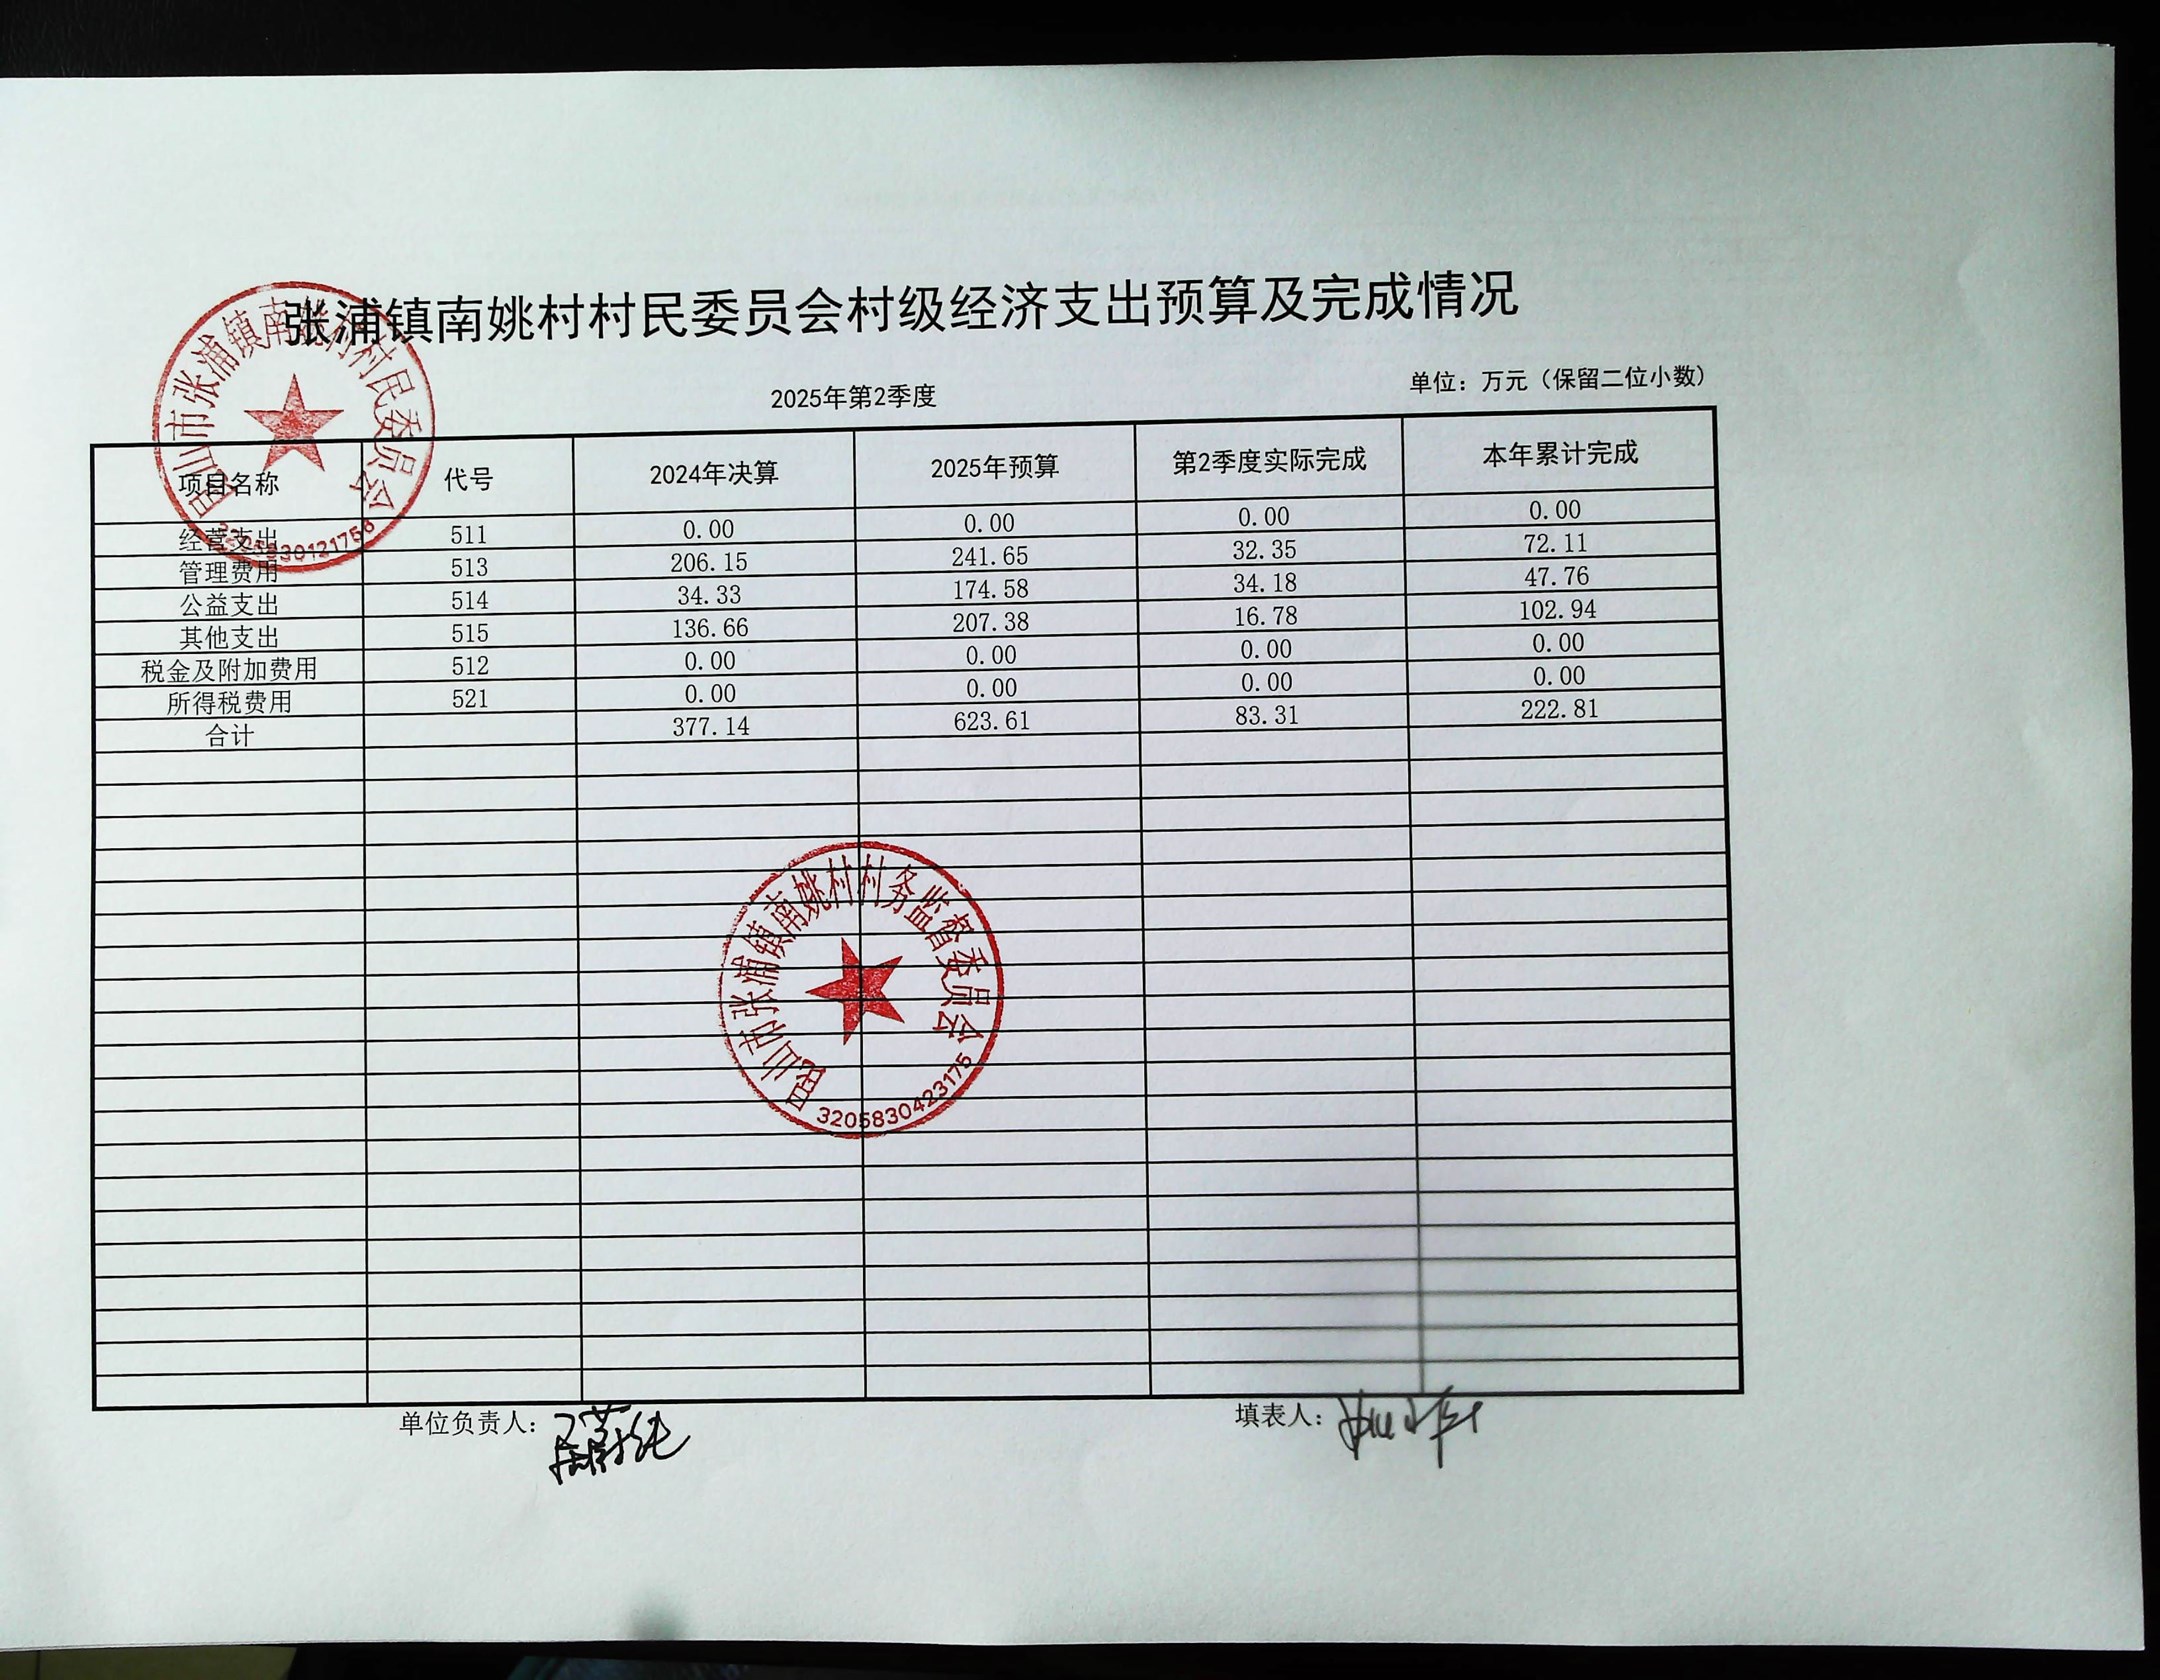 张浦镇南姚村村民委员会村级经济支出预算及完成情况
2025年第2季度
单位：万元（保留二位小数）
项目名称 代号 2024年决算 2025年预算 第2季度实际完成 本年累计完成
经营支出 511 0.00 0.00 0.00 0.00
管理费用 513 206.15 241.65 32.35 72.11
公益支出 514 34.33 174.58 34.18 47.76
其他支出 515 136.66 207.38 16.78 102.94
税金及附加费用 512 0.00 0.00 0.00 0.00
所得税费用 521 0.00 0.00 0.00 0.00
合计 377.14 623.61 83.31 222.81
单位负责人：
填表人：
昆山市张浦镇南姚村村民委员会
昆山市张浦镇南姚村村务监督委员会
3205830423175